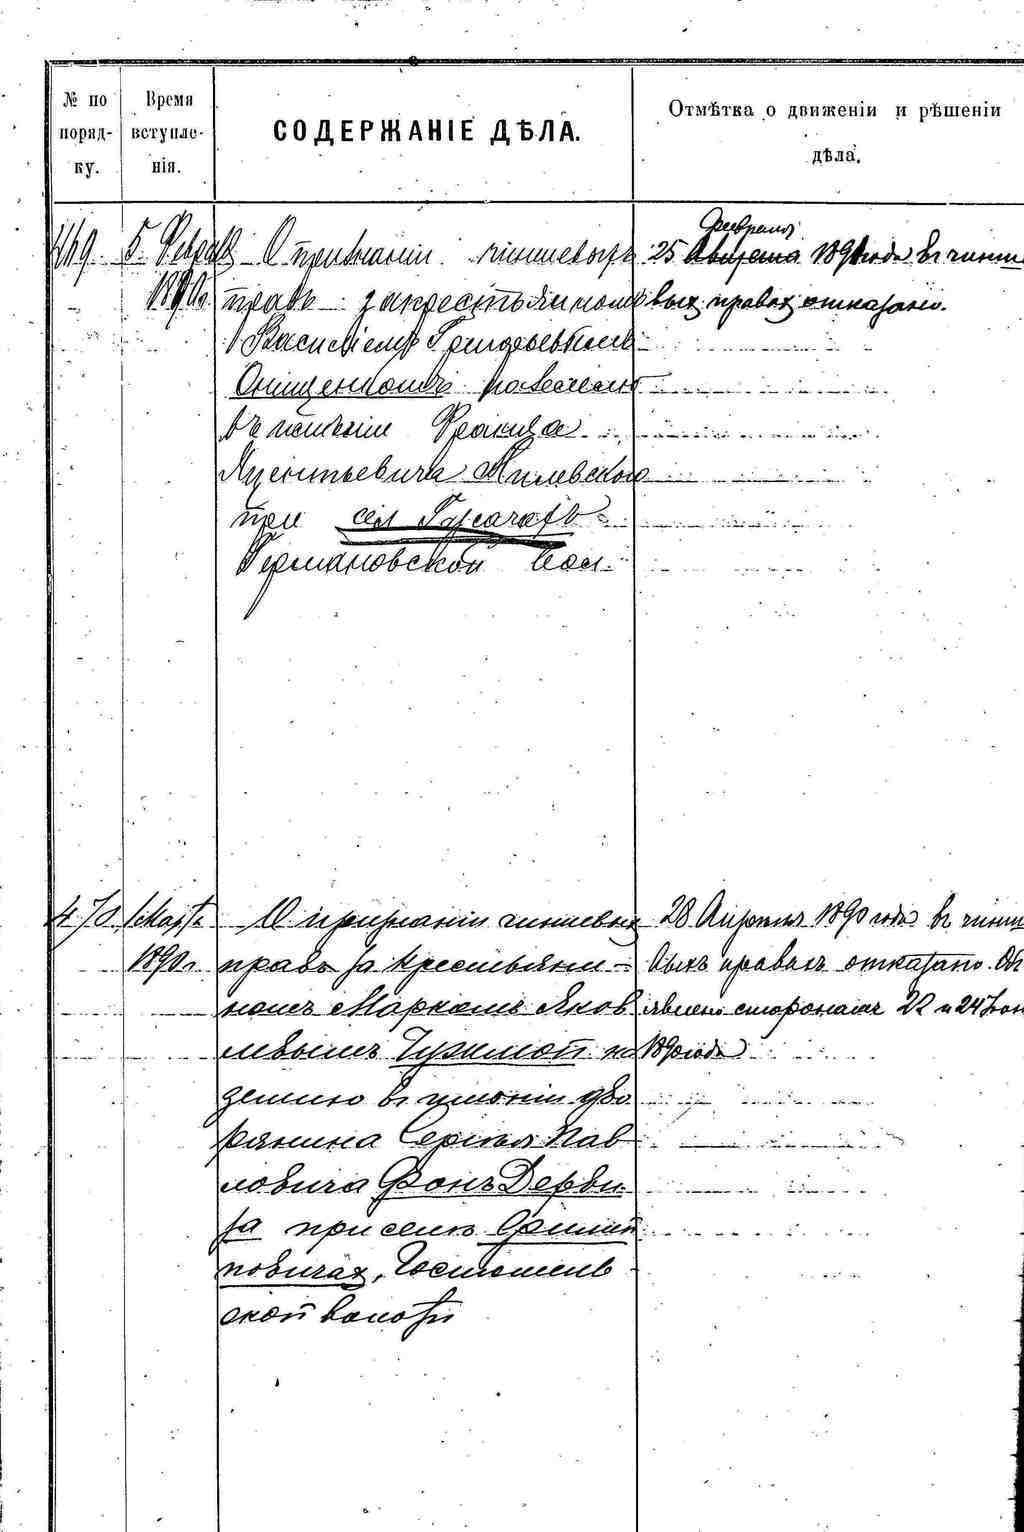 № по
поряд-
ку.
Время
вступле-
нія.
СОДЕРЖАНІЕ ДѢЛА.
Отмѣтка о движеніи и рѣшеніи
дѣла.
469
5 Февраля
1890 г.
О признаніи чиншевыхъ
правъ за крестьяниномъ
Василіемъ Григорьевымъ
Онищенкомъ на землю
въ имѣніи
Милевскаго
при сел
Германовской вол.
Февраля
25 Августа 1891 года въ чинше
выхъ правахъ отказано.
470
Марта
1890 г.
О признаніи чиншевыхъ
правъ за крестьяни-
номъ Маркомъ Яков
левымъ на
землю въ имѣніи дво
рянина Сергѣя Пав
ловича Фонъ Дерви
за при селѣ Филип
повичахъ,
ской волости
28 Апрѣля 1890 года въ чинш
выхъ правахъ отказано. Объ
явлено сторонамъ 22 и 24 Іюн
1890 года